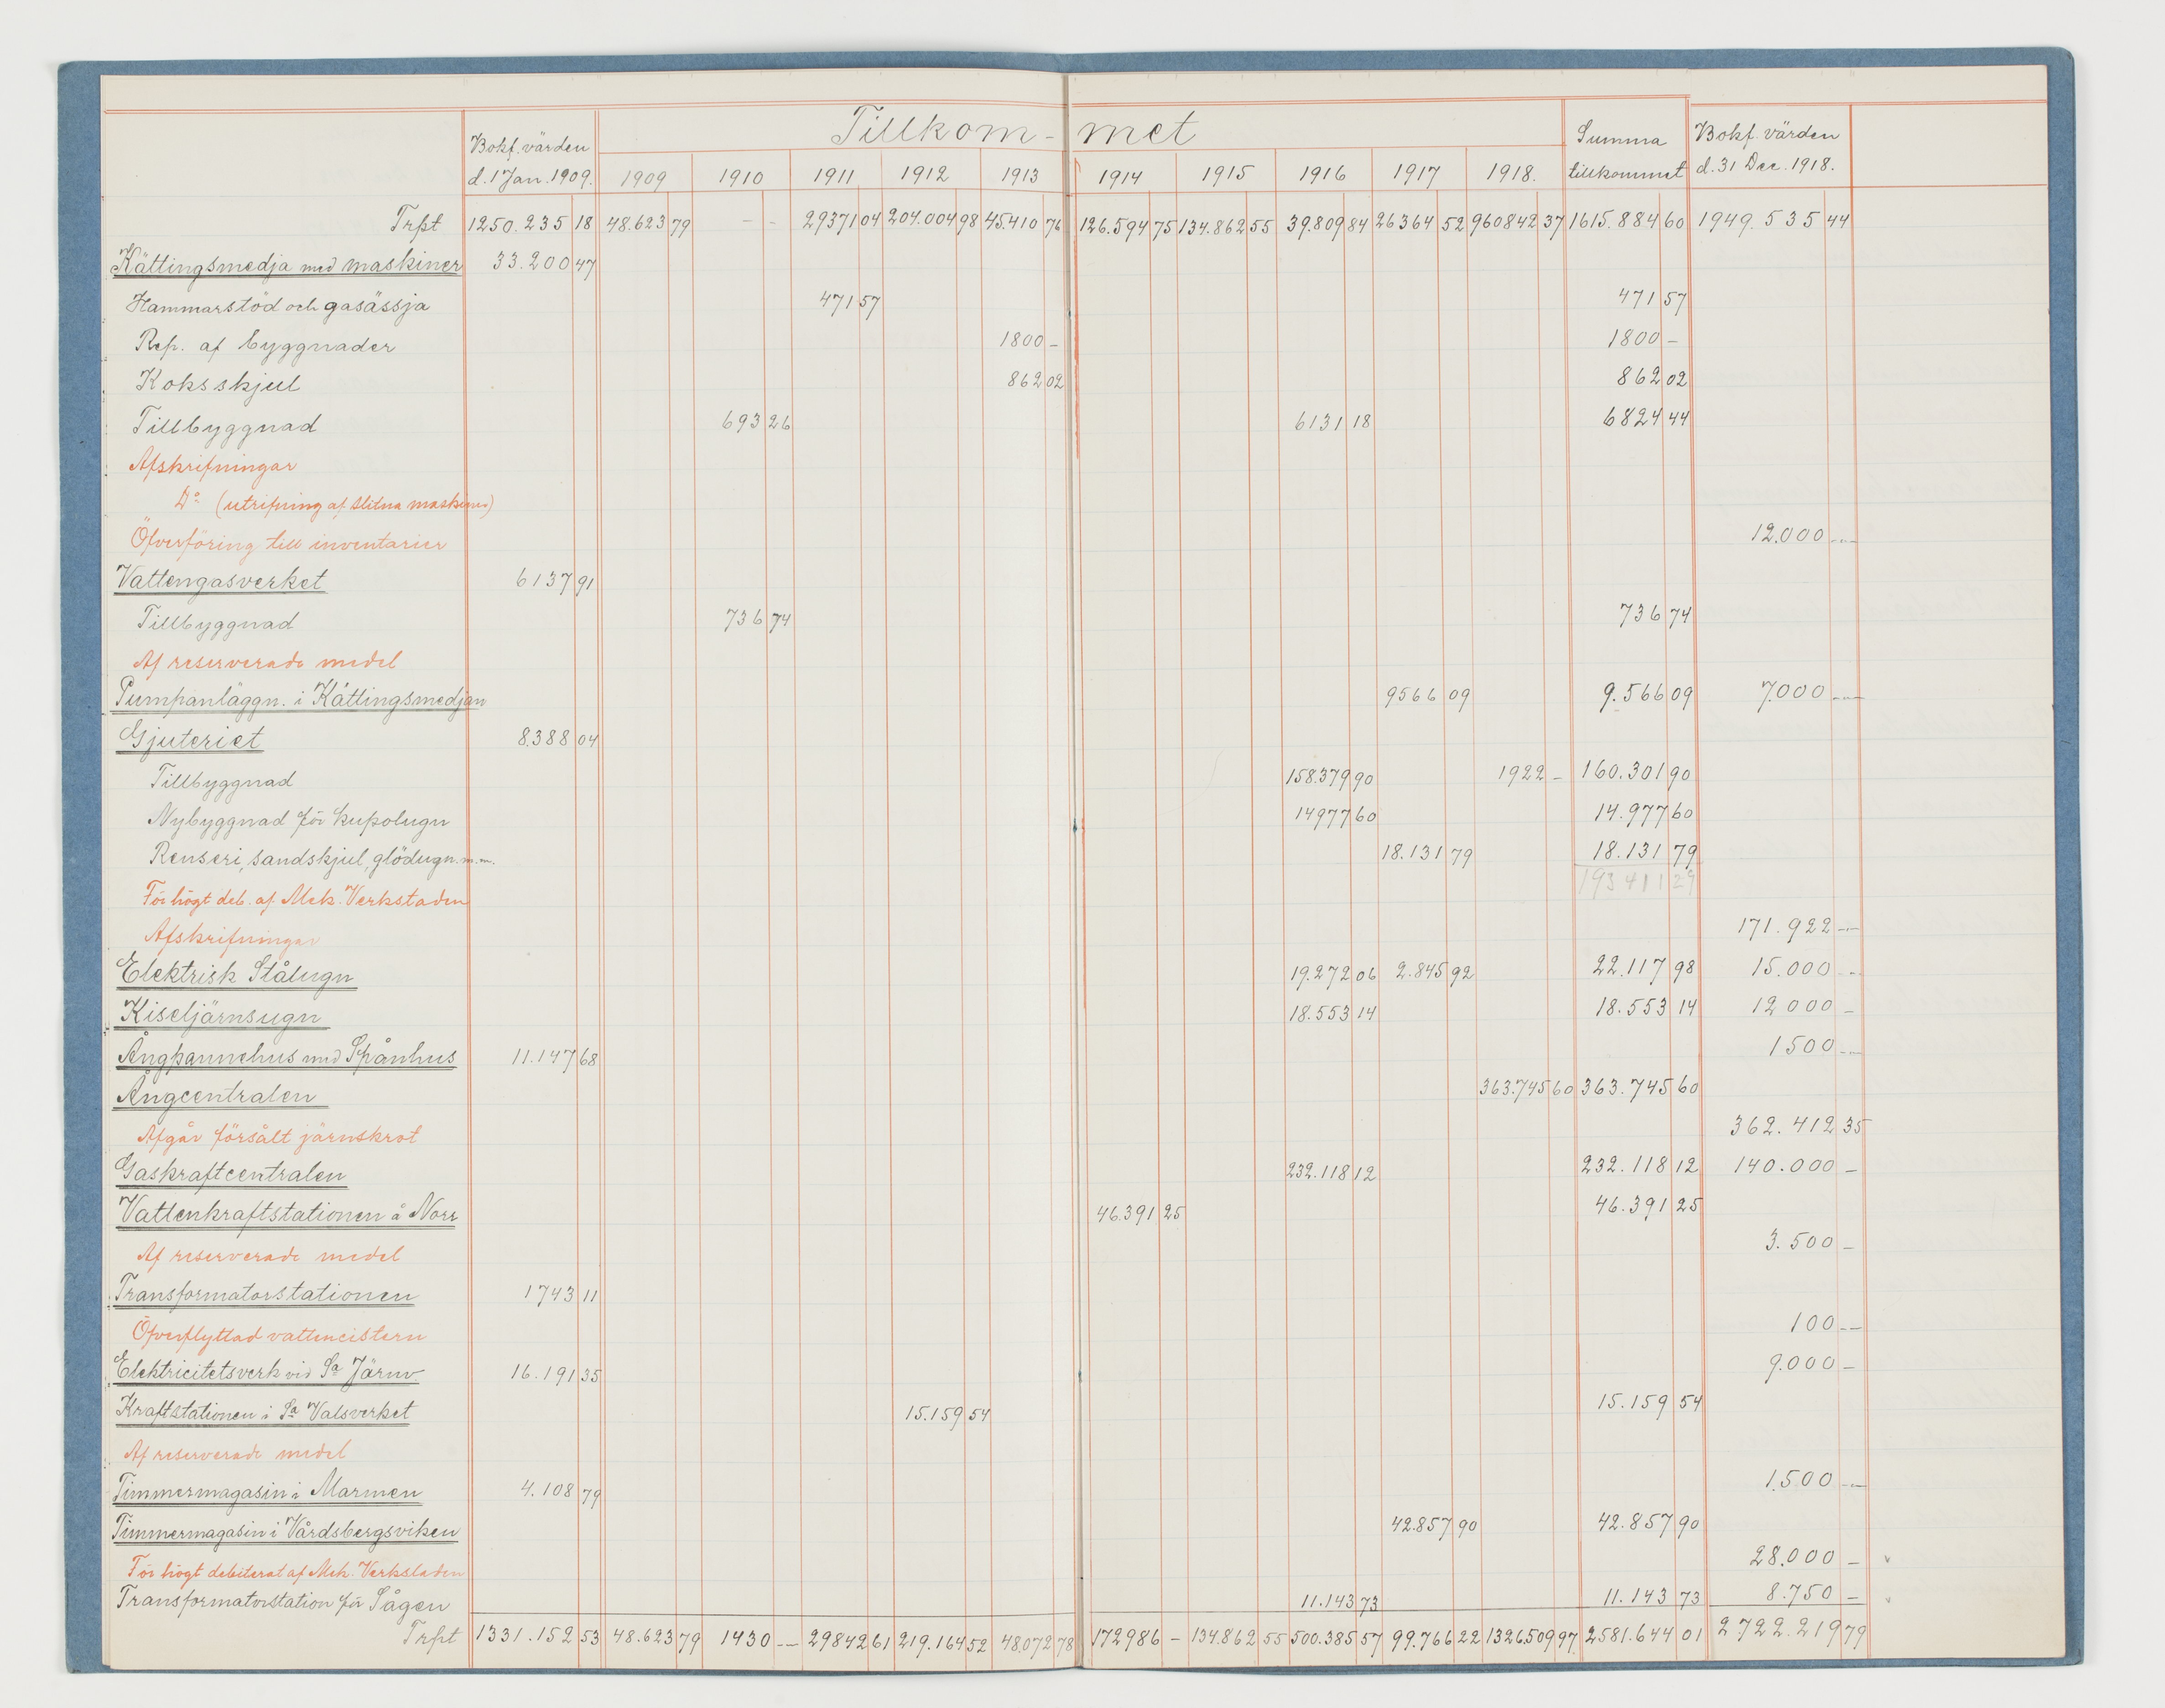 Tillkom- met
Bokf. värden d. 1 Jan. 1909. 1909 1910 1911 1912 1913 1914 1915 1916 1917 1918. Summa tillkommet Bokf. värden d. 31 Dec. 1918.
Trpt 1250.235 18 48.623 79 - - 29371 04 204.004 98 45.410 76 126.594 75 134.862 55 39.809 84 26364 52 960842 37 1615.884 60 1949.535 44
Kättingsmedja med maskiner 33.200 47
Hammarstöd och gasässja 471 57 471 57
Rep. af byggnader 1800 - 1800 -
Koksskjul 862 02 862 02
Tillbyggnad 693 26 6131 18 6824 44
Afskrifningar
Do (utrifning af slitna maskiner)
Öfverföring till inventarier 12.000 --
Vattengasverket 6137 91
Tillbyggnad 736 74 736 74
Af reserverade medel
Pumpanläggn. i Kättingsmedjan 9566 09 9.566 09 7.000 --
Gjuteriet 8.388 04
Tillbyggnad 158.379 90 1922 - 160.301 90
Nybyggnad för kupolugn 14977 60 14.977 60
Renseri, sandskjul, glödugn. m.m. 18.131 79 18.131 79
193411 29
För högt deb. af Mek. Verkstaden
Afskrifningar 171.922 --
Elektrisk Stålugn 19.272 06 2.845 92 22.117 98 15.000 --
Kiseljärnsugn 18.553 14 18.553 14 12000 -
Ångpannehus med Spånhus 11.147 68 1500 --
Ångcentralen 363.745 60 363.745 60
Afgår försålt järnskrot 362.412 35
Gaskraftcentralen 232.118 12 232.118 12 140.000 -
Vattenkraftstationen å Norr 46.391 25 46.391 25
Af reserverade medel 3.500 -
Transformatorstationen 1743 11
Öfverflyttad vattencistern 100 --
Elektricitetsverk vid Sa Järnv 16.191 35 9.000 -
Kraftstationen i Sa Valsverket 15.159 54 15.159 54
Af reserverade medel
Timmermagasin i Marmen 4.108 79 1.500 --
Timmermagasin i Vårdsbergsviken 42.857 90 42.857 90
För högt debiterat af Mek. Verkstaden 28.000 -
Transformatorstation för Sågen 11.143 73 11.143 73 8.750 -
Trpt 1331.152 53 48.623 79 1430 -- 29842 61 219.164 52 48.072 78 172986 - 134.862 55 500.385 57 99.766 22 1326.509 97 2581.644 01 2.722.219 79